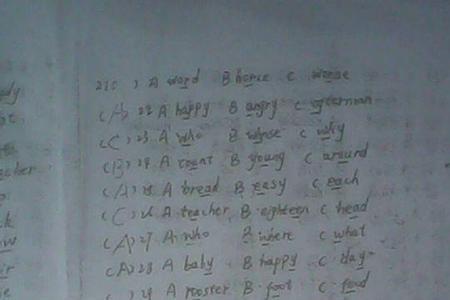 dy
A word B horse C worse
(A) 22 A happy B angry C
(C) 23 A who B whose C why
(B) 24 A count B young C around
(A) 25 A bread B easy C each
(C) 26 A teacher B eighteen C head
(A) 27 A who B where C what
(A) 28 A baby B happy C day
29 A rooster B foot C food